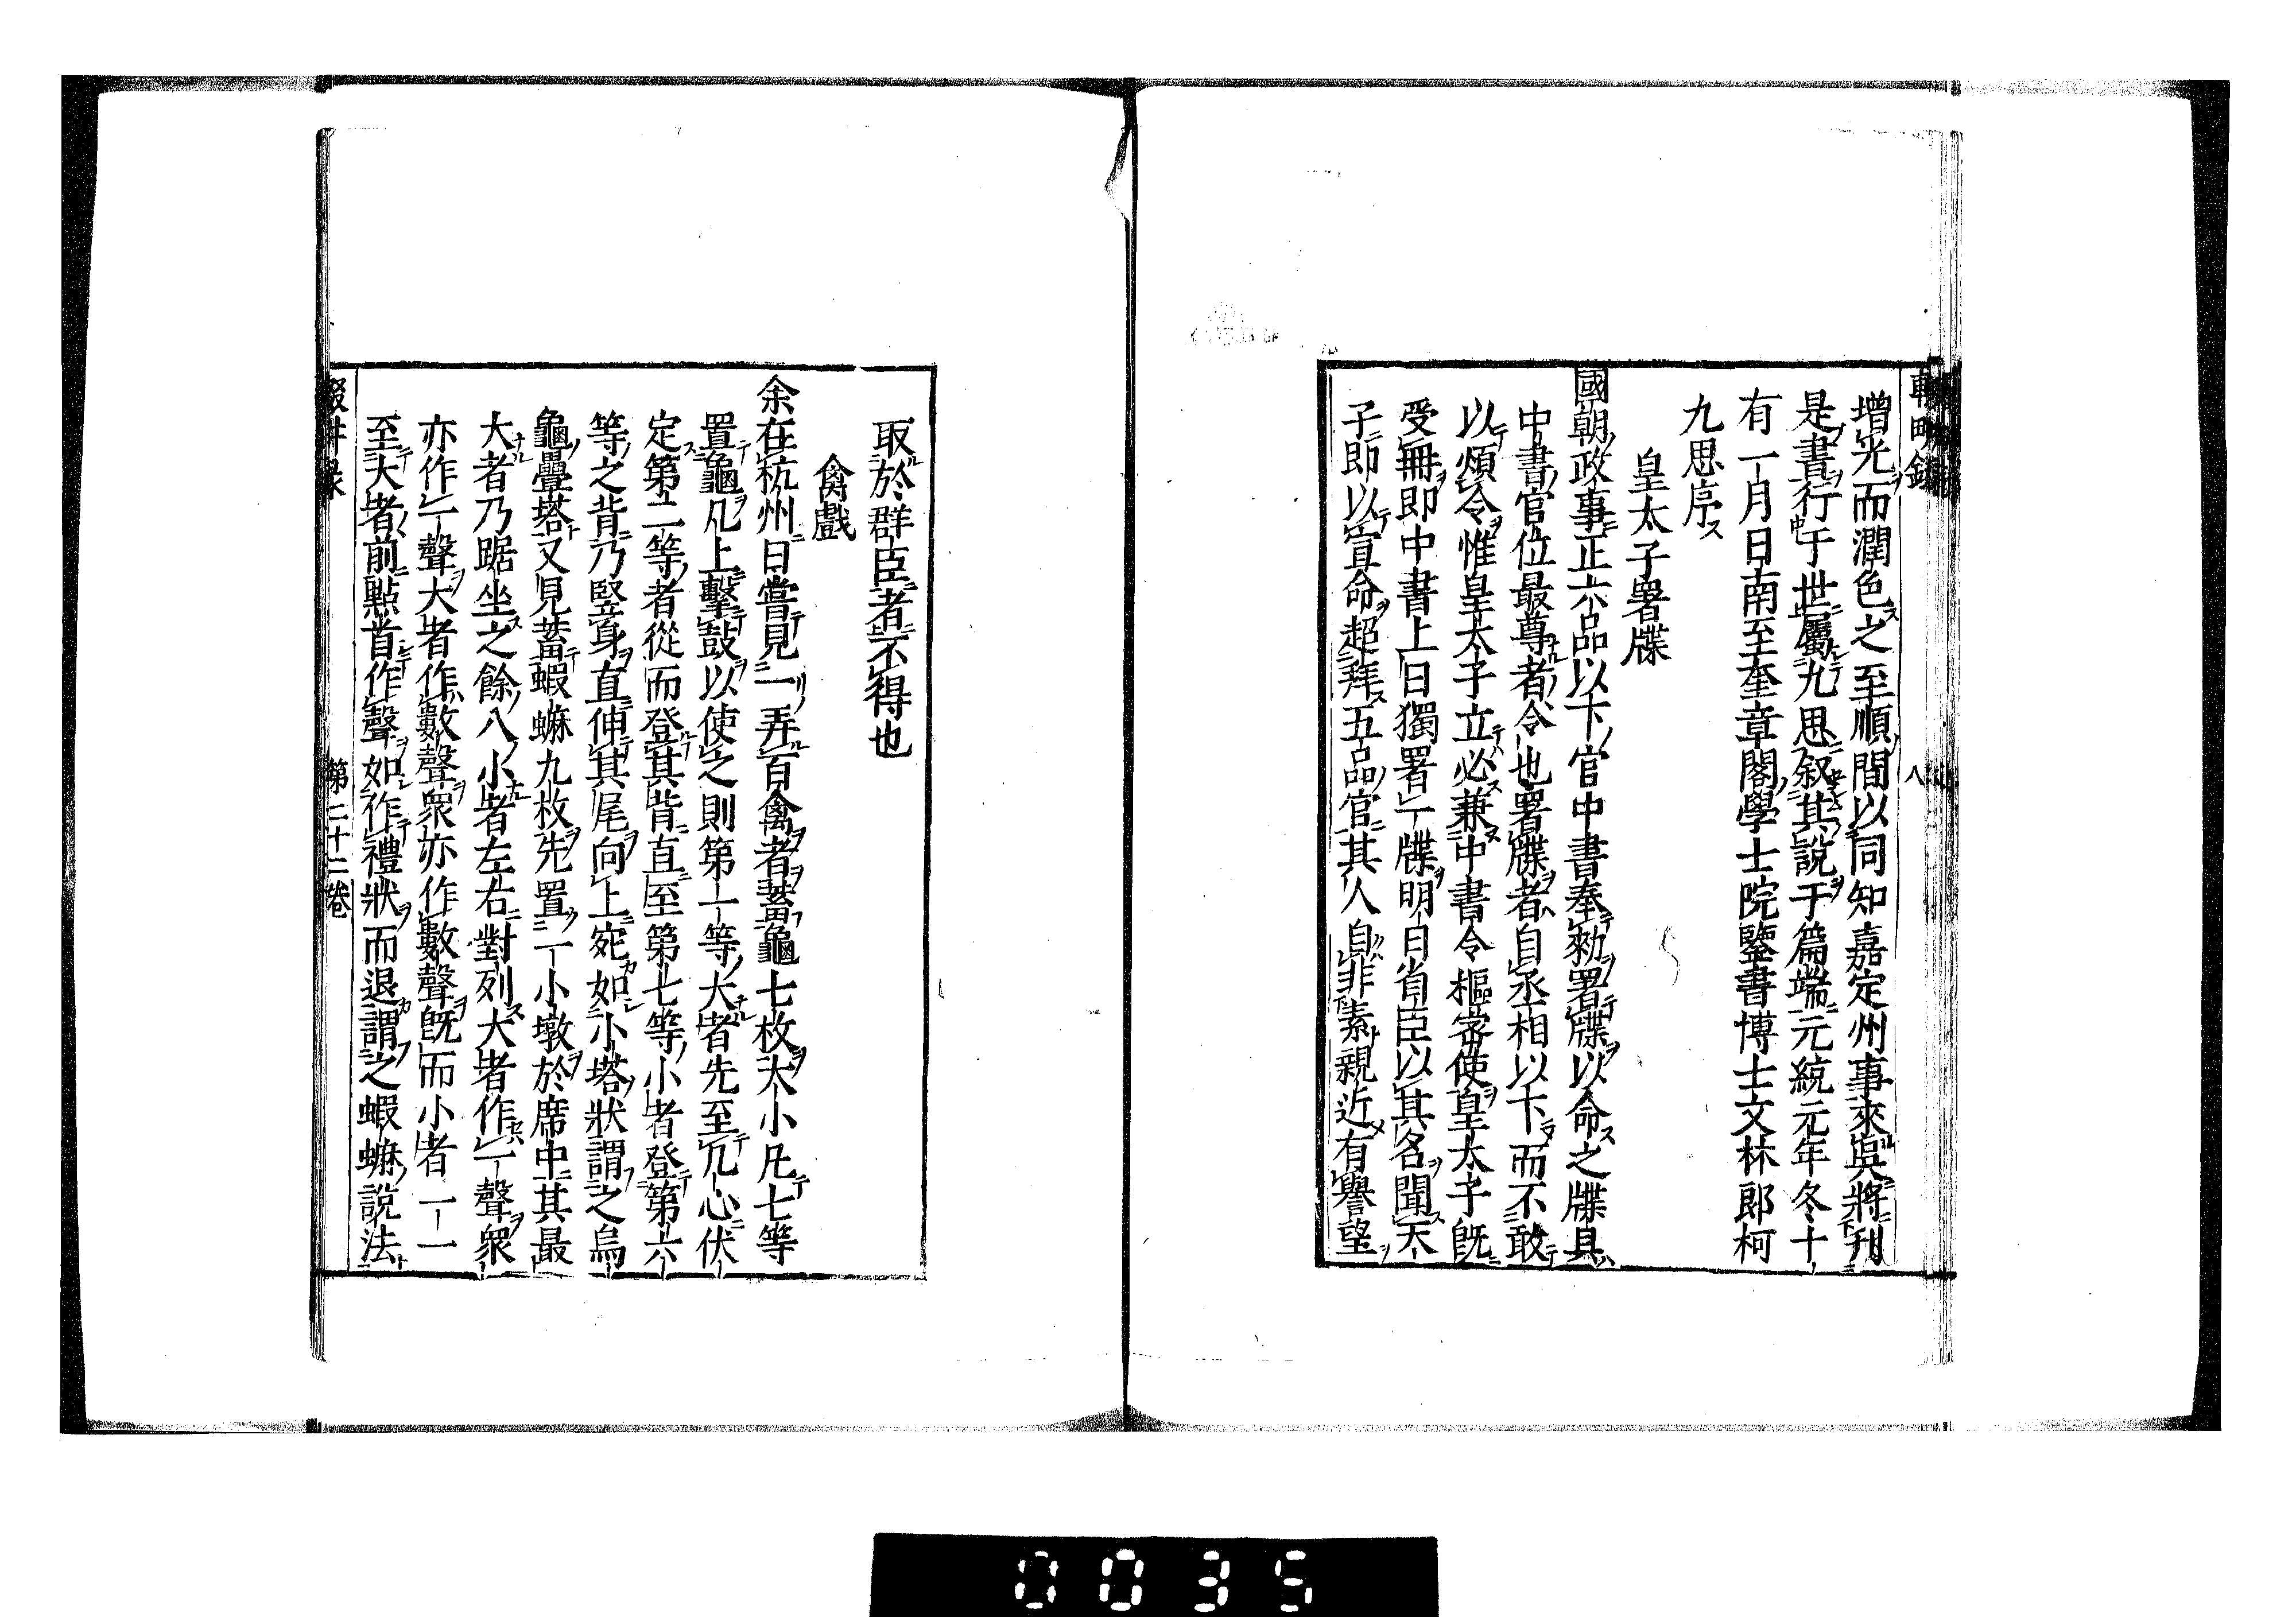 増光而潤色之至順間以同知嘉定州事來吳將刊
是書行于世屬九思叙其說于篇端元統元年冬十
有一月日南至奎章閣學士院鑒書博士文林郎柯
九思序
皇太子署牒
國朝政事正六品以下官中書奉勑署牒以命之牒具
中書官位最尊者令也署牒者自丞相以下而不敢
以煩令惟皇太子立必兼中書令樞密使皇太子既
受冊即中書上日獨署一牒明日省臣以其名聞天
子即以宣命超拜五品官其人自非素親近有譽望
取於群臣者不得也
禽戲
余在杭州日嘗見一弄百禽者蓄龜七枚大小凡七等
置龜几上擊鼓以使之則第一等大者先至几心伏
定第二等者從而登其背直至第七等小者登第六
等之背乃竪身直伸其尾向上宛如小塔狀謂之烏
龜疊塔又見蓄蝦蟆九枚先置一小墩於席中其最
大者乃踞坐之餘八小者左右對列大者作一聲衆
亦作一聲大者作數聲衆亦作數聲既而小者一一
至大者前點首作聲如作禮狀而退謂之蝦蟆說法
第二十二卷
八
0035